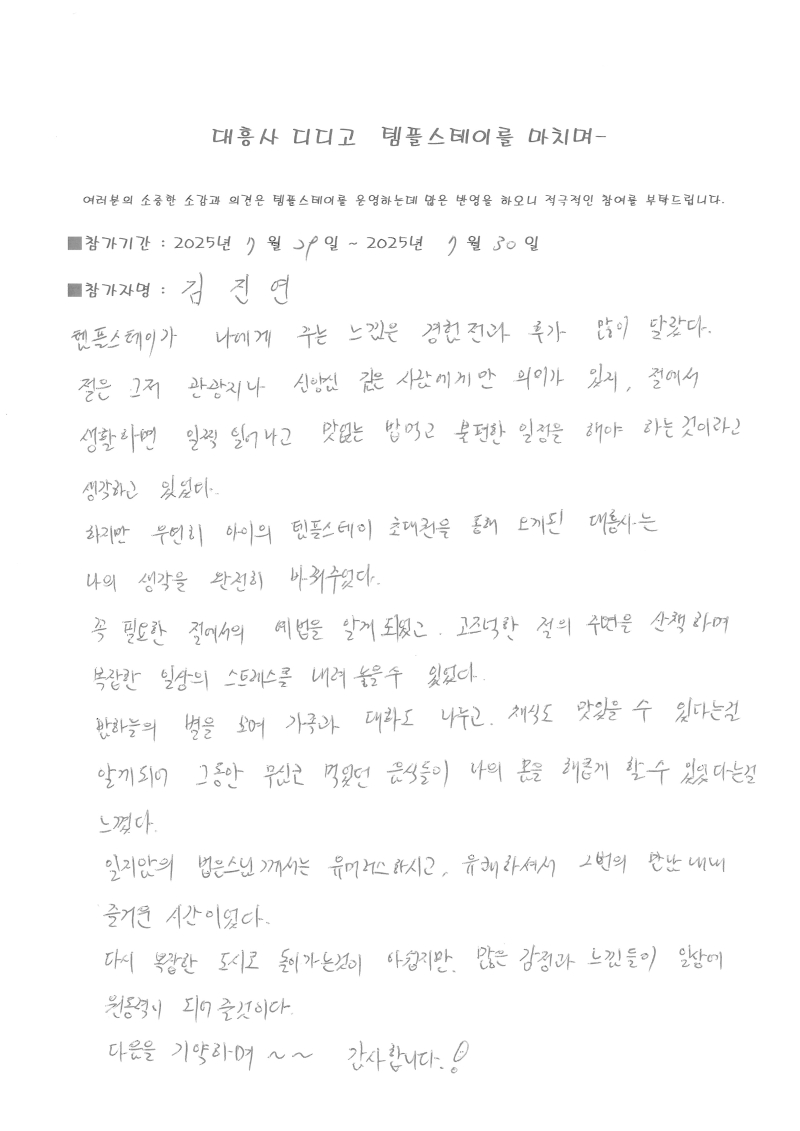 대흥사 디디고 템플스테이를 마치며-
여러분의 소중한 소감과 의견은 템플스테이를 운영하는데 많은 반영을 하오니 적극적인 참여를 부탁드립니다.
■참가기간 : 2025년 7 월 29 일 ~ 2025년 7 월 30 일
■참가자명 : 김 진 연
템플스테이가 나에게 주는 느낌은 경험 전과 후가 많이 달랐다.
절은 그저 관광지나 신앙심 깊은 사람에게만 의미가 있지, 절에서
생활하면 일찍 일어나고 맛없는 밥먹고 불편한 일정을 해야 하는 것이라고
생각하고 있었다.
하지만 우연히 아이의 템플스테이 초대권을 통해 오게된 대흥사는
나의 생각을 완전히 바꿔주었다.
꼭 필요한 절에서의 예법을 알게 되었고, 고즈넉한 절의 주변을 산책하며
복잡한 일상의 스트레스를 내려 놓을수 있었다.
밤하늘의 별을 보며 가족과 대화도 나누고, 채식도 맛있을 수 있다는걸
알게되어 그동안 무심코 먹었던 음식들이 나의 몸을 해롭게 할 수 있었다는걸
느꼈다.
일지암의 법은스님께서는 유머러스하시고, 유쾌하셔서 2번의 만남 내내
즐거운 시간이었다.
다시 복잡한 도시로 돌아가는것이 아쉽지만, 많은 감정과 느낀들이 일상에
원동력이 되어줄것이다.
다음을 기약하며 ~ ~ 감사합니다.!